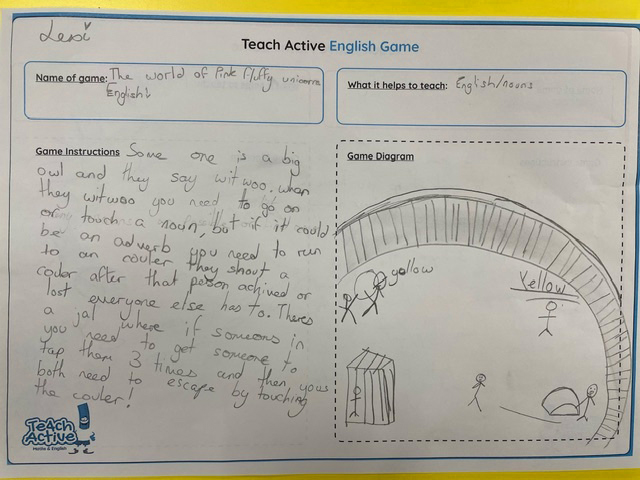 Lexi
Teach Active English Game
Name of game: The world of Pink fluffy unicorns
English!
What it helps to teach: English/nouns
Game Instructions Some one is a big
owl and they say wit woo. when
they witwoo you need to go on
or touch a noun, but if it could
be an adverb you need to run
to an couler they shout a
couler after that person achived or
lost everyone else has to. Theres
a jal where if someons in
you need to get someone to
tap them 3 times and then yous
both need to escape by touching
the couler!
Game Diagram
yellow
Yellow
Teach
Active
Maths & English